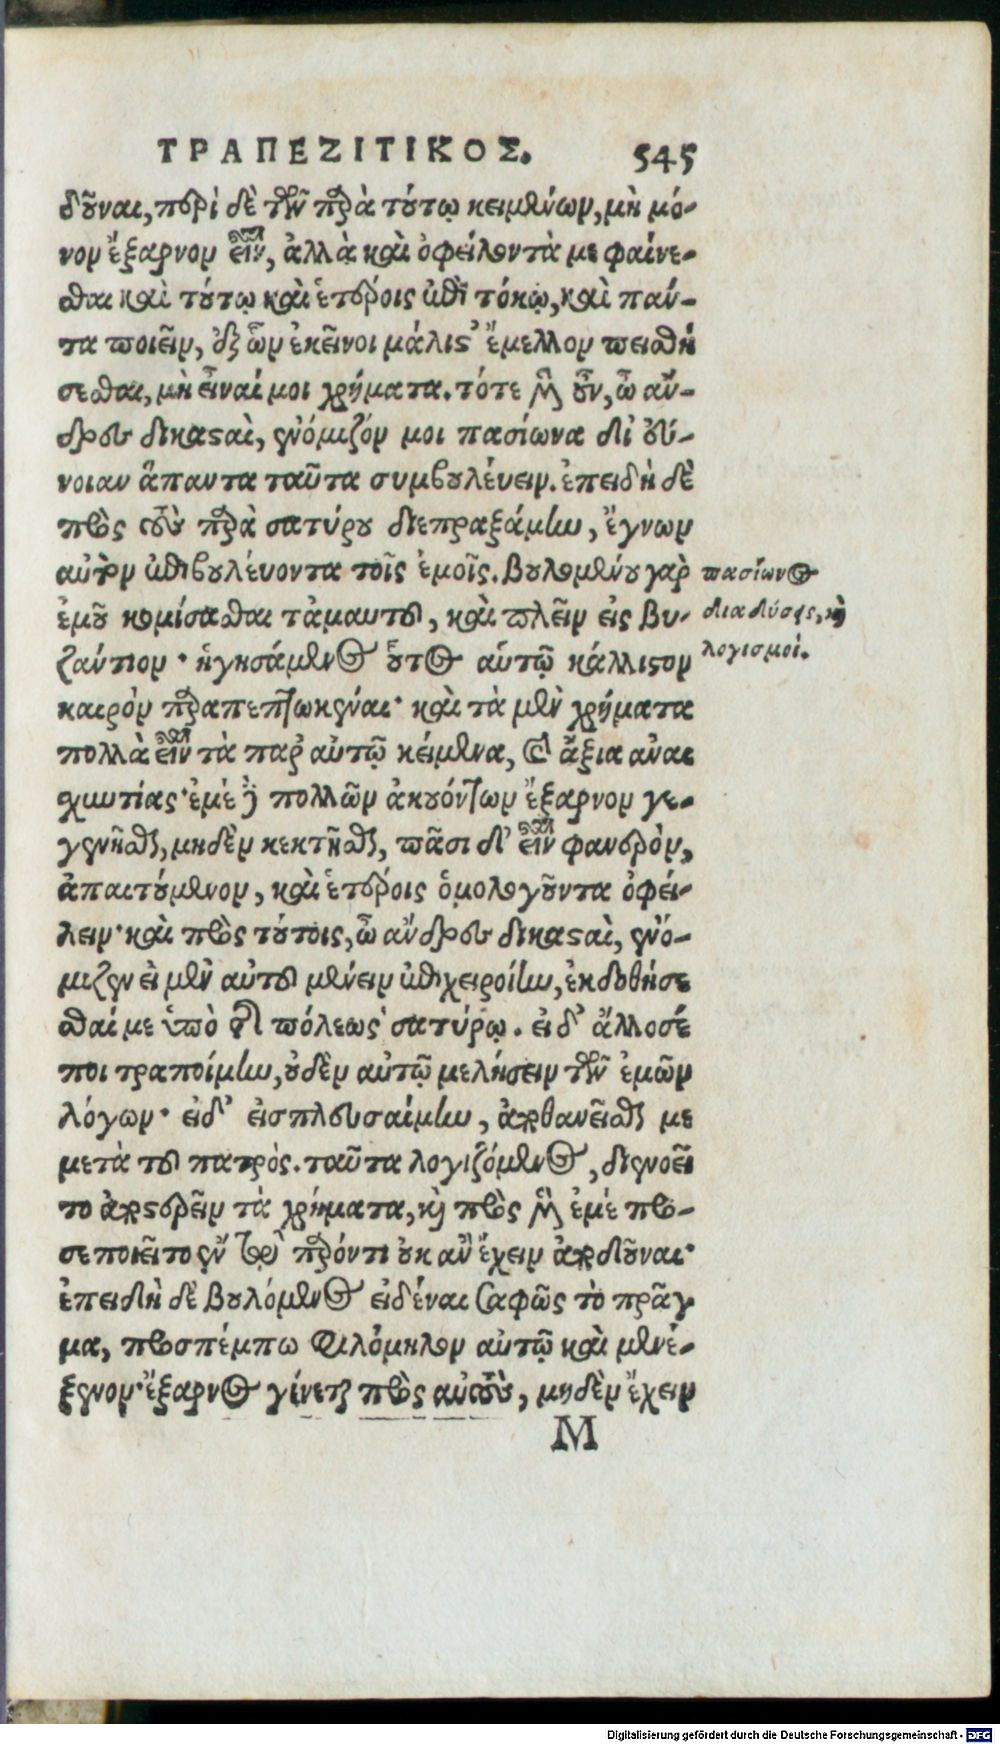 ΤΡΑΠΕΖΙΤΙΚΟΣ. 545
δοῦναι, περὶ δὲ τῶν παρὰ τούτῳ κειμένων, μὴ μό-
νον ἔξαρνον εἶναι, ἀλλὰ καὶ ὀφείλοντά με φαίνε-
σθαι καὶ τούτῳ καὶ ἑτέροις ἐπὶ τόκῳ, καὶ πάν-
τα ποιεῖν, ἐξ ὧν ἐκεῖνοι μάλιστ' ἔμελλον πεισθή
σεσθαι, μὴ εἶναί μοι χρήματα. τότε μὲν οὖν, ὦ ἄν-
δρες δικασαὶ, ἐνόμιζόν μοι πασίωνα δι' εὔ-
νοιαν ἅπαντα ταῦτα συμβουλεύειν. ἐπειδὴ δὲ
πρὸς τοὺς παρὰ σατύρου διεπραξάμην, ἔγνων
αὐτὸν ἐπιβουλεύοντα τοῖς ἐμοῖς. βουλομένου γὰρ
ἐμοῦ κομίσασθαι τἀμαυτοῦ, καὶ πλεῖν εἰς βυ-
ζάντιον· ἡγησάμενος οὗτος αὑτῷ κάλλιστον
καιρὸν παραπεπτωκέναι· καὶ τὰ μὲν χρήματα
πολλὰ εἶναι τὰ παρ' αὐτῷ κείμενα, καὶ ἄξια ἀναι
σχυντίας· ἐμὲ δὲ πολλῶν ἀκουόντων ἔξαρνον γε-
γενῆσθαι, μηδὲν κεκτῆσθαι, πᾶσι δ' εἶναι φανερὸν,
ἀπαιτούμενον, καὶ ἑτέροις ὁμολογοῦντα ὀφεί-
λειν· καὶ πρὸς τούτοις, ὦ ἄνδρες δικασαὶ, ἐνό-
μιζεν εἰ μὲν αὐτοῦ μένειν ἐπιχειροίην, ἐκδοθήσε
σθαί με ὑπὸ τῆς πόλεως σατύρῳ. εἰ δ' ἄλλοσέ
ποι τραποίμην, οὐδὲν αὐτῷ μελήσειν τῶν ἐμῶν
λόγων· εἰ δ' εἰσπλευσαίμην, ἀποθανεῖσθαί με
μετὰ τοῦ πατρός. ταῦτα λογιζόμενος, διενοεῖ
το ἀποστερεῖν τὰ χρήματα, καὶ πρὸς μὲν ἐμὲ προ-
σεποιεῖτο ἐν τῷ παρόντι οὐκ ἂν ἔχειν ἀποδοῦναι·
ἐπειδὴ δὲ βουλόμενος εἰδέναι σαφῶς τὸ πρᾶγ
μα, προσπέμπω Φιλόμηλον αὐτῷ καὶ μενέ-
ξενον· ἔξαρνος γίνεται πρὸς αὐτοὺς, μηδὲν ἔχειν
Μ
πασίωνος
διαλύσεις, καὶ
λογισμοί.
Digitalisierung gefördert durch die Deutsche Forschungsgemeinschaft - DFG